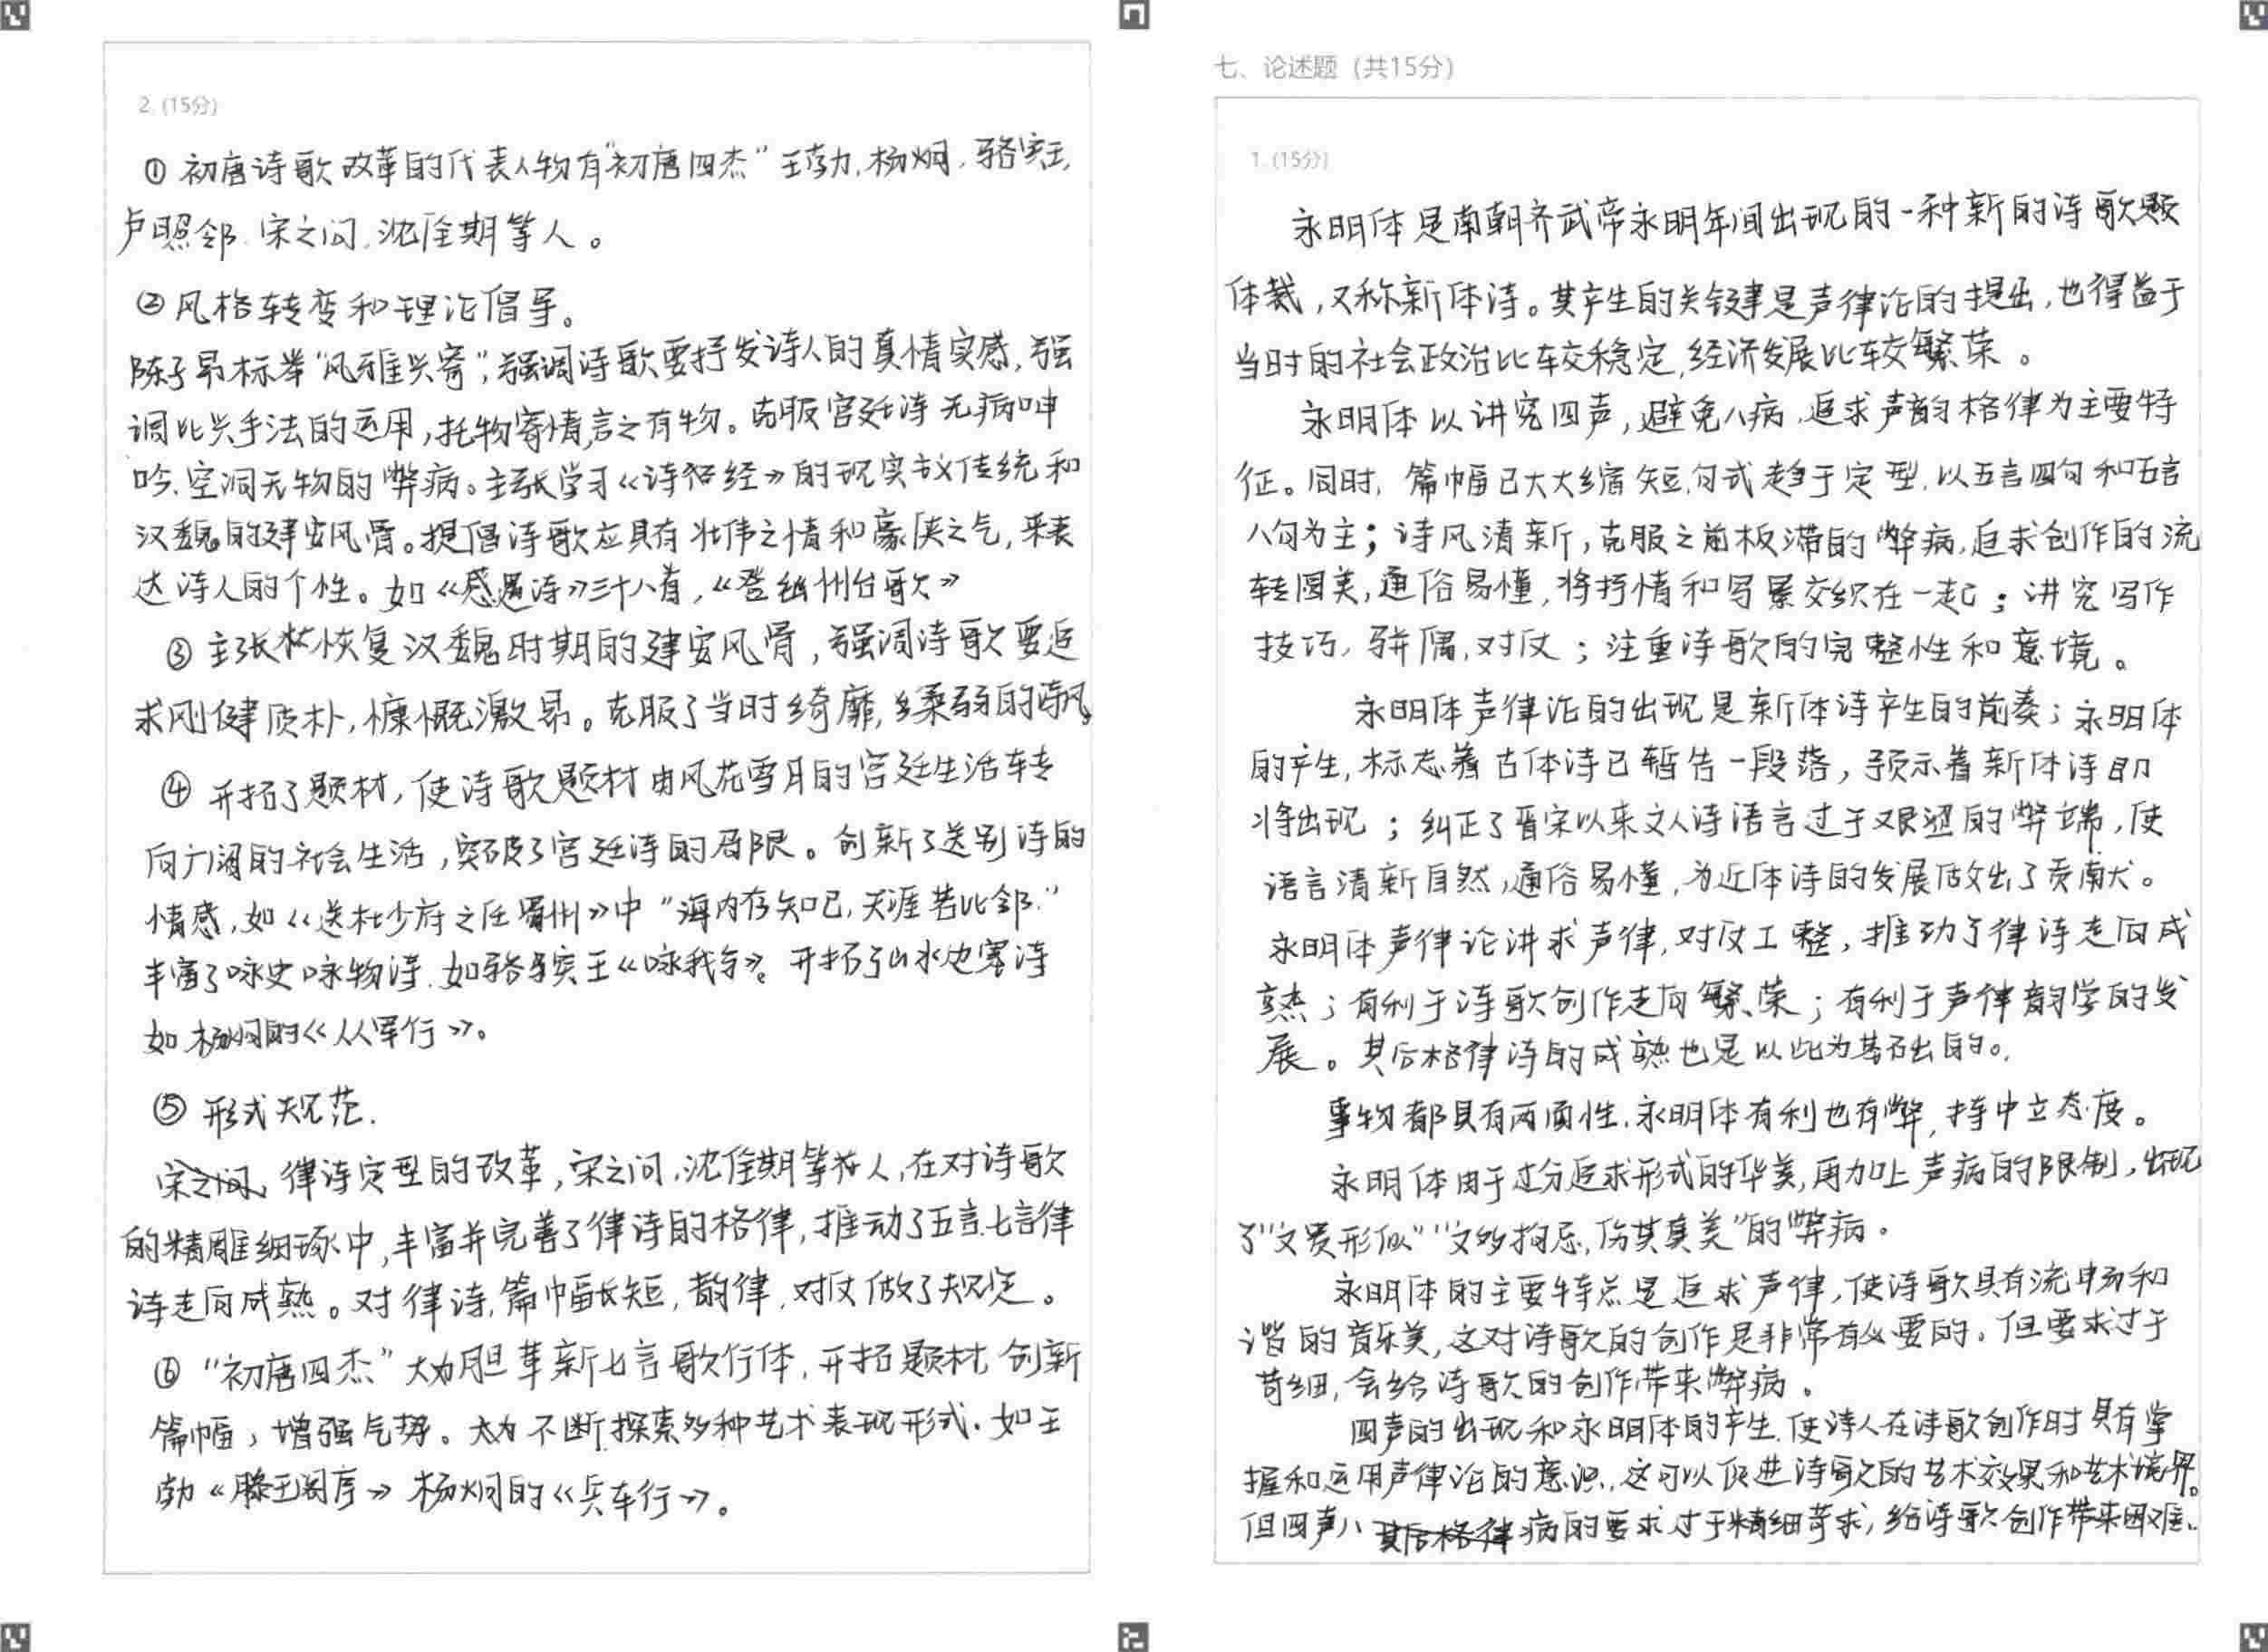 2. (15分)
① 初唐诗歌改革的代表人物有"初唐四杰"王勃,杨炯,骆宾王,
卢照邻.宋之问.沈佺期等人。
② 风格转变和理论倡导。
陈子昂标举"风雅兴寄",强调诗歌要抒发诗人的真情实感,强
调比兴手法的运用,托物寄情,言之有物。克服宫廷诗无病呻
吟.空洞无物的弊病。主张学习《诗经》的现实主义传统和
汉魏的建安风骨。提倡诗歌应具有壮伟之情和豪侠之气,来表
达诗人的个性。如《感遇诗》三十八首,《登幽州台歌》
③ 主张恢复汉魏时期的建安风骨,强调诗歌要追
求刚健质朴,慷慨激昂。克服了当时绮靡,柔弱的诗风。
④ 开拓了题材,使诗歌题材由风花雪月的宫廷生活转
向广阔的社会生活,突破了宫廷诗的局限。创新了送别诗的
情感,如《送杜少府之任蜀州》中"海内存知己,天涯若比邻."
丰富了咏史咏物诗.如骆宾王《咏我鸟》。开拓了山水边塞诗
如杨炯的《从军行》。
⑤ 形式规范.
宋之问、律诗定型的改革,宋之问,沈佺期等人,在对诗歌
的精雕细琢中,丰富并完善了律诗的格律,推动了五言七言律
诗走向成熟。对律诗,篇幅长短,韵律,对仗做了规定。
⑥ "初唐四杰"大胆革新七言歌行体,开拓题材,创新
篇幅,增强气势。不断探索多种艺术表现形式.如王
勃《滕王阁序》杨炯的《兵车行》。
七、论述题 (共15分)
1. (15分)
永明体是南朝齐武帝永明年间出现的一种新的诗歌题
体裁,又称新体诗。其产生的关键是声律论的提出,也得益于
当时的社会政治比较稳定,经济发展比较繁荣。
永明体以讲究四声,避免八病,追求声韵格律为主要特
征。同时,篇幅已大大缩短,句式趋于定型,以五言四句和五言
八句为主;诗风清新,克服之前板滞的弊病,追求创作的流
转圆美,通俗易懂,将抒情和写景交织在一起;讲究写作
技巧,骈偶,对仗;注重诗歌的完整性和意境。
永明体声律论的出现是新体诗产生的前奏;永明体
的产生,标志着古体诗已暂告一段落,预示着新体诗即
将出现;纠正了晋宋以来文人诗语言过于艰涩的弊端,使
语言清新自然,通俗易懂,为近体诗的发展做出了贡献。
永明体声律论讲求声律,对仗工整,推动了律诗走向成
熟;有利于诗歌创作走向繁荣;有利于声律韵学的发
展。其后格律诗的成熟也是以此为基础的。
事物都具有两面性.永明体有利也有弊,持中立态度。
永明体由于过分追求形式的华美,再加上声病的限制,出现
了"文贵形似""文多拘忌,伤其真美"的弊病。
永明体的主要特点是追求声律,使诗歌具有流畅和
谐的音乐美,这对诗歌的创作是非常有必要的。但要求过于
苛细,会给诗歌的创作带来弊病。
四声的出现和永明体的产生.使诗人在诗歌创作时具有掌
握和运用声律论的意识,这可以促进诗歌的艺术效果和艺术境界。
但四声八其后格律病的要求过于精细苛求,给诗歌创作带来困难.